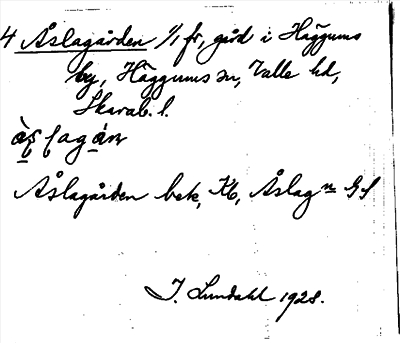 4 Åslagården 1/1 fr, gård i Häggums
by, Häggums sn, Valle hd,
Skarab. l.
Åslagården bek, Kb, Åslagn GS
I. Lundahl 1928.